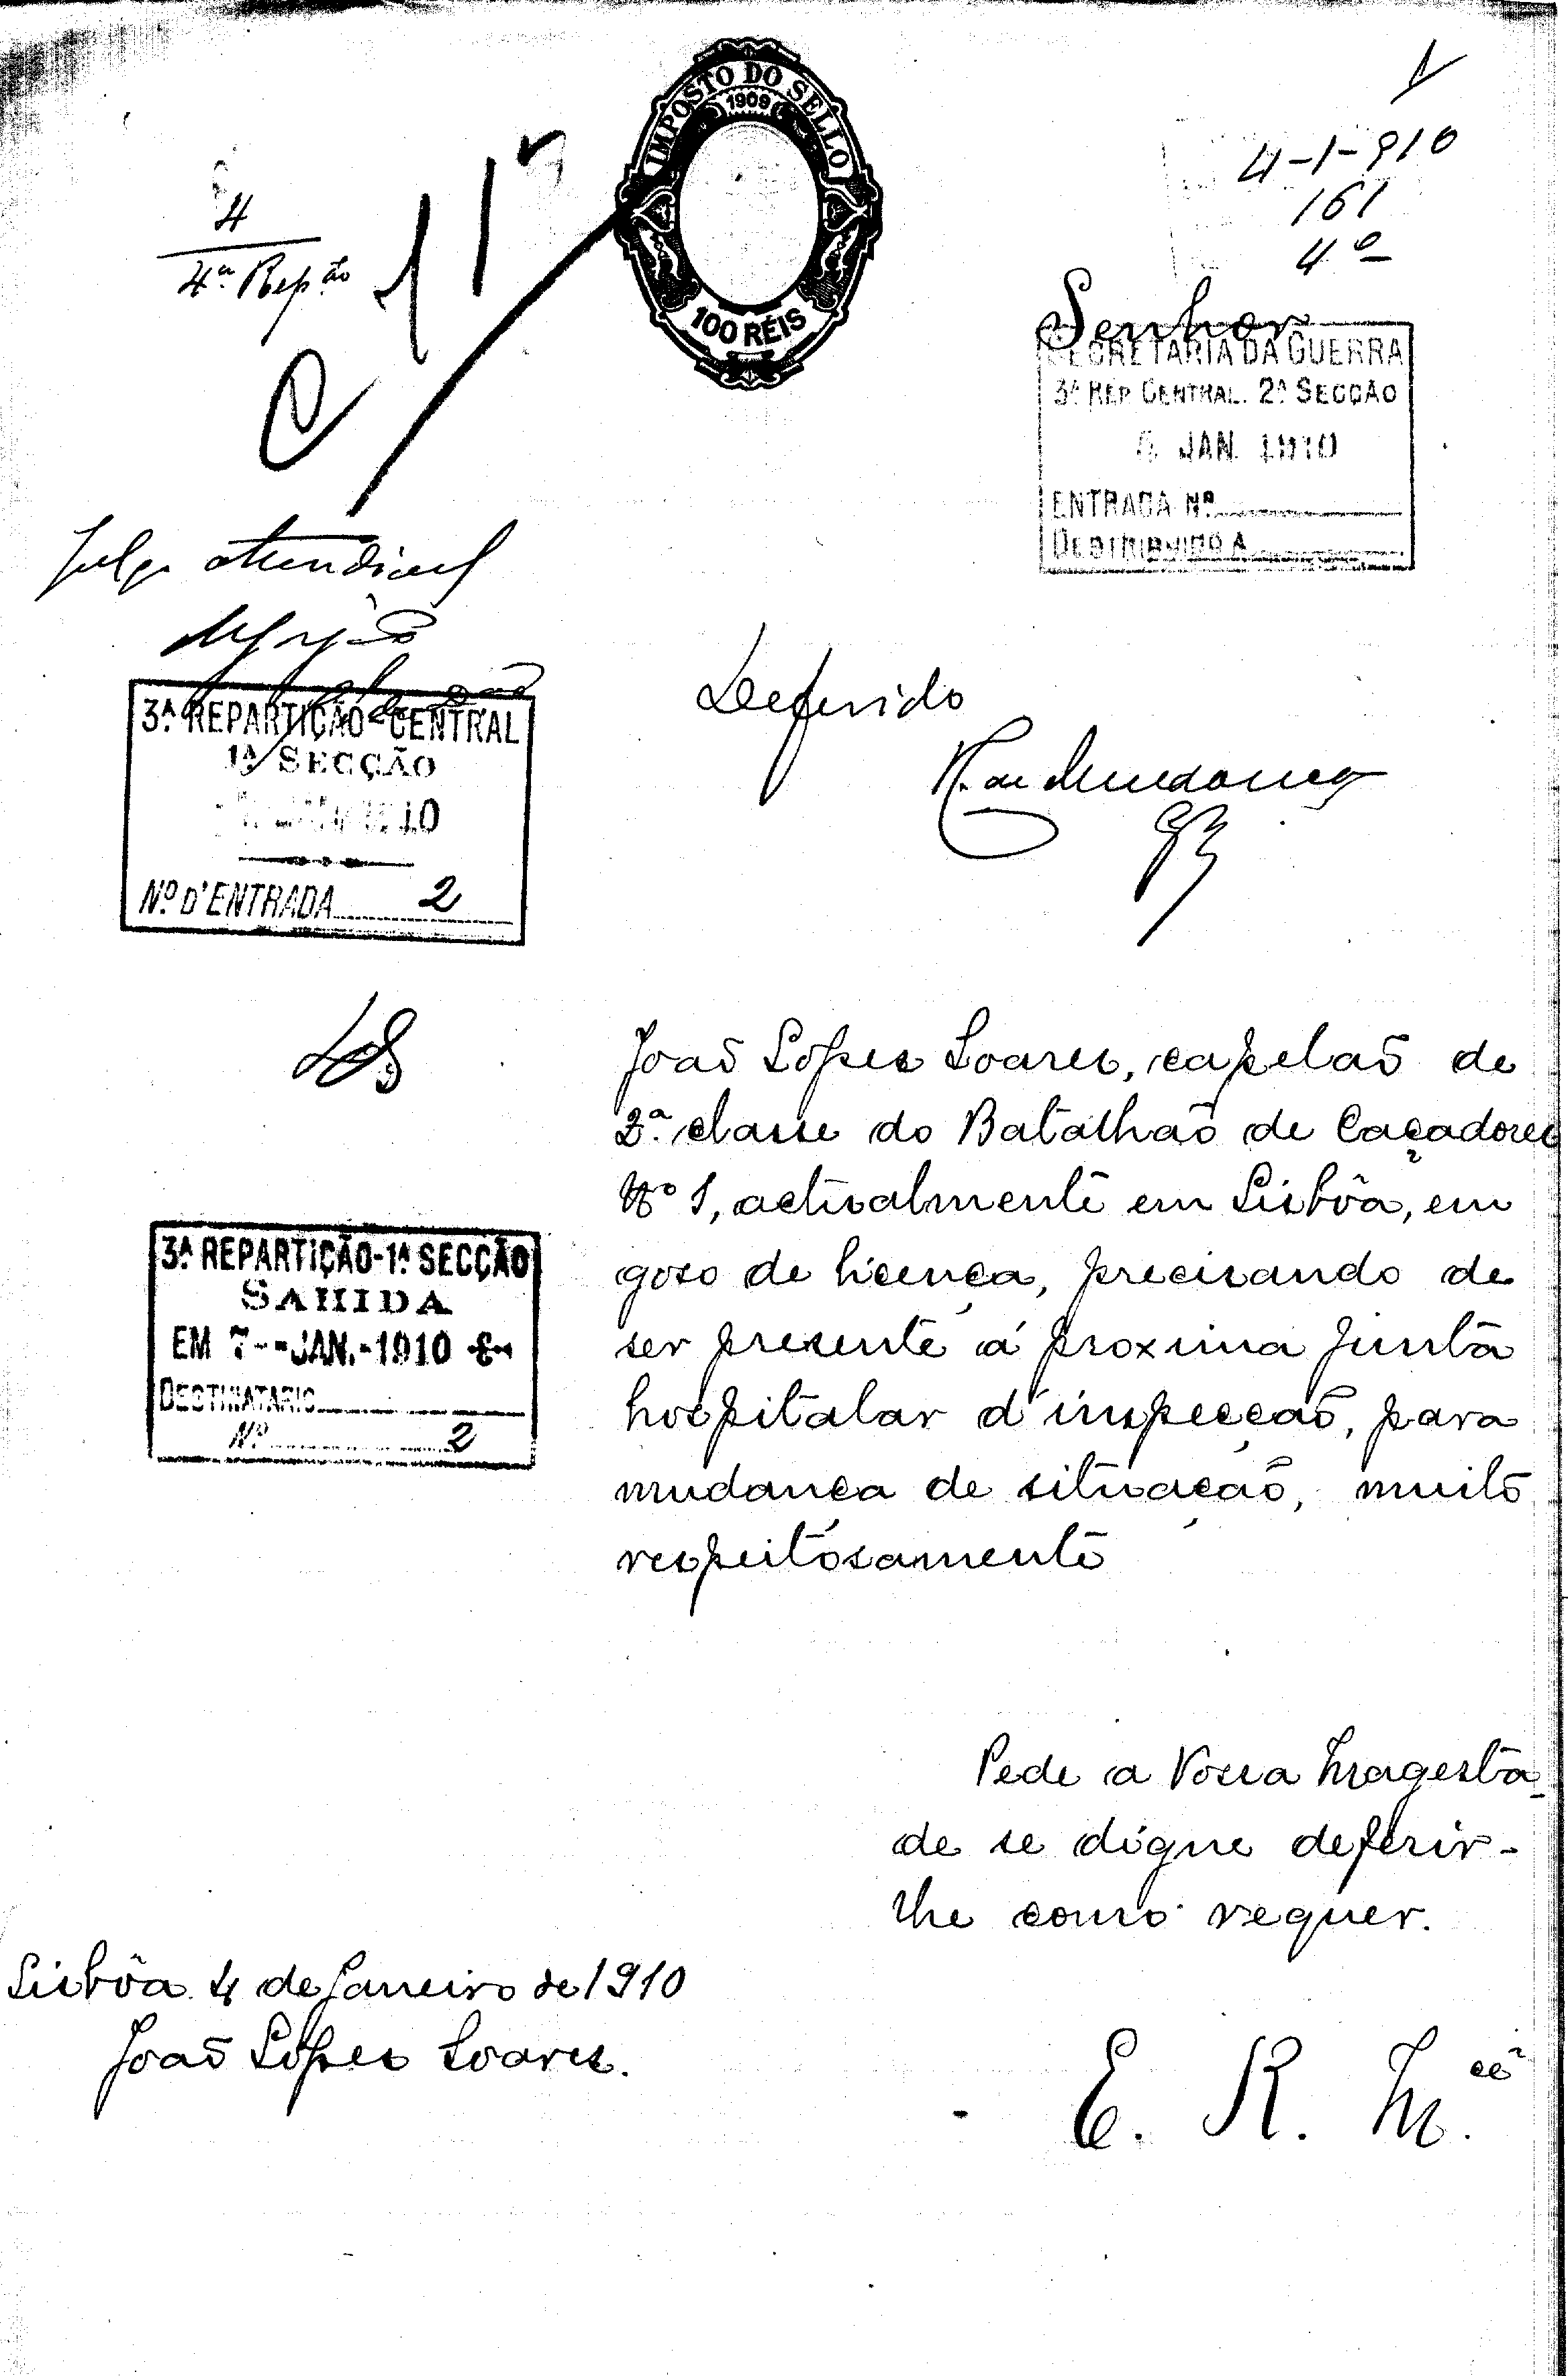 IMPOSTO DO SELLO
1909
100 RÉIS
4-1-910
161
4ª
4
4ª Repão
Senhor
SECRETARIA DA GUERRA
3ª REP. CENTRAL. 2ª SECÇÃO
JAN. 1910
ENTRADA Nº
DESTRIBUIDO A
Julgo attendivel
3ª REPARTIÇÃO CENTRAL
1ª SECÇÃO
Nº D'ENTRADA 2
Deferido
João Lopes Soares, capelão de
2ª classe do Batalhão de Caçadores
Nº 1, actualmente em Lisbôa, em
goso de licença, precisando de
ser presente á proxima Junta
hospitalar d'inspecção, para
mudança de situação, muito
respeitosamente
3ª REPARTIÇÃO-1ª SECÇÃO
SAHIDA
EM 7--JAN.-1910
DESTINATARIO
Nº 2
Pede a Vossa Magesta-
de se digne deferir-
lhe como requer.
Lisbôa 4 de Janeiro de 1910
João Lopes Soares.
E. R. M.cê